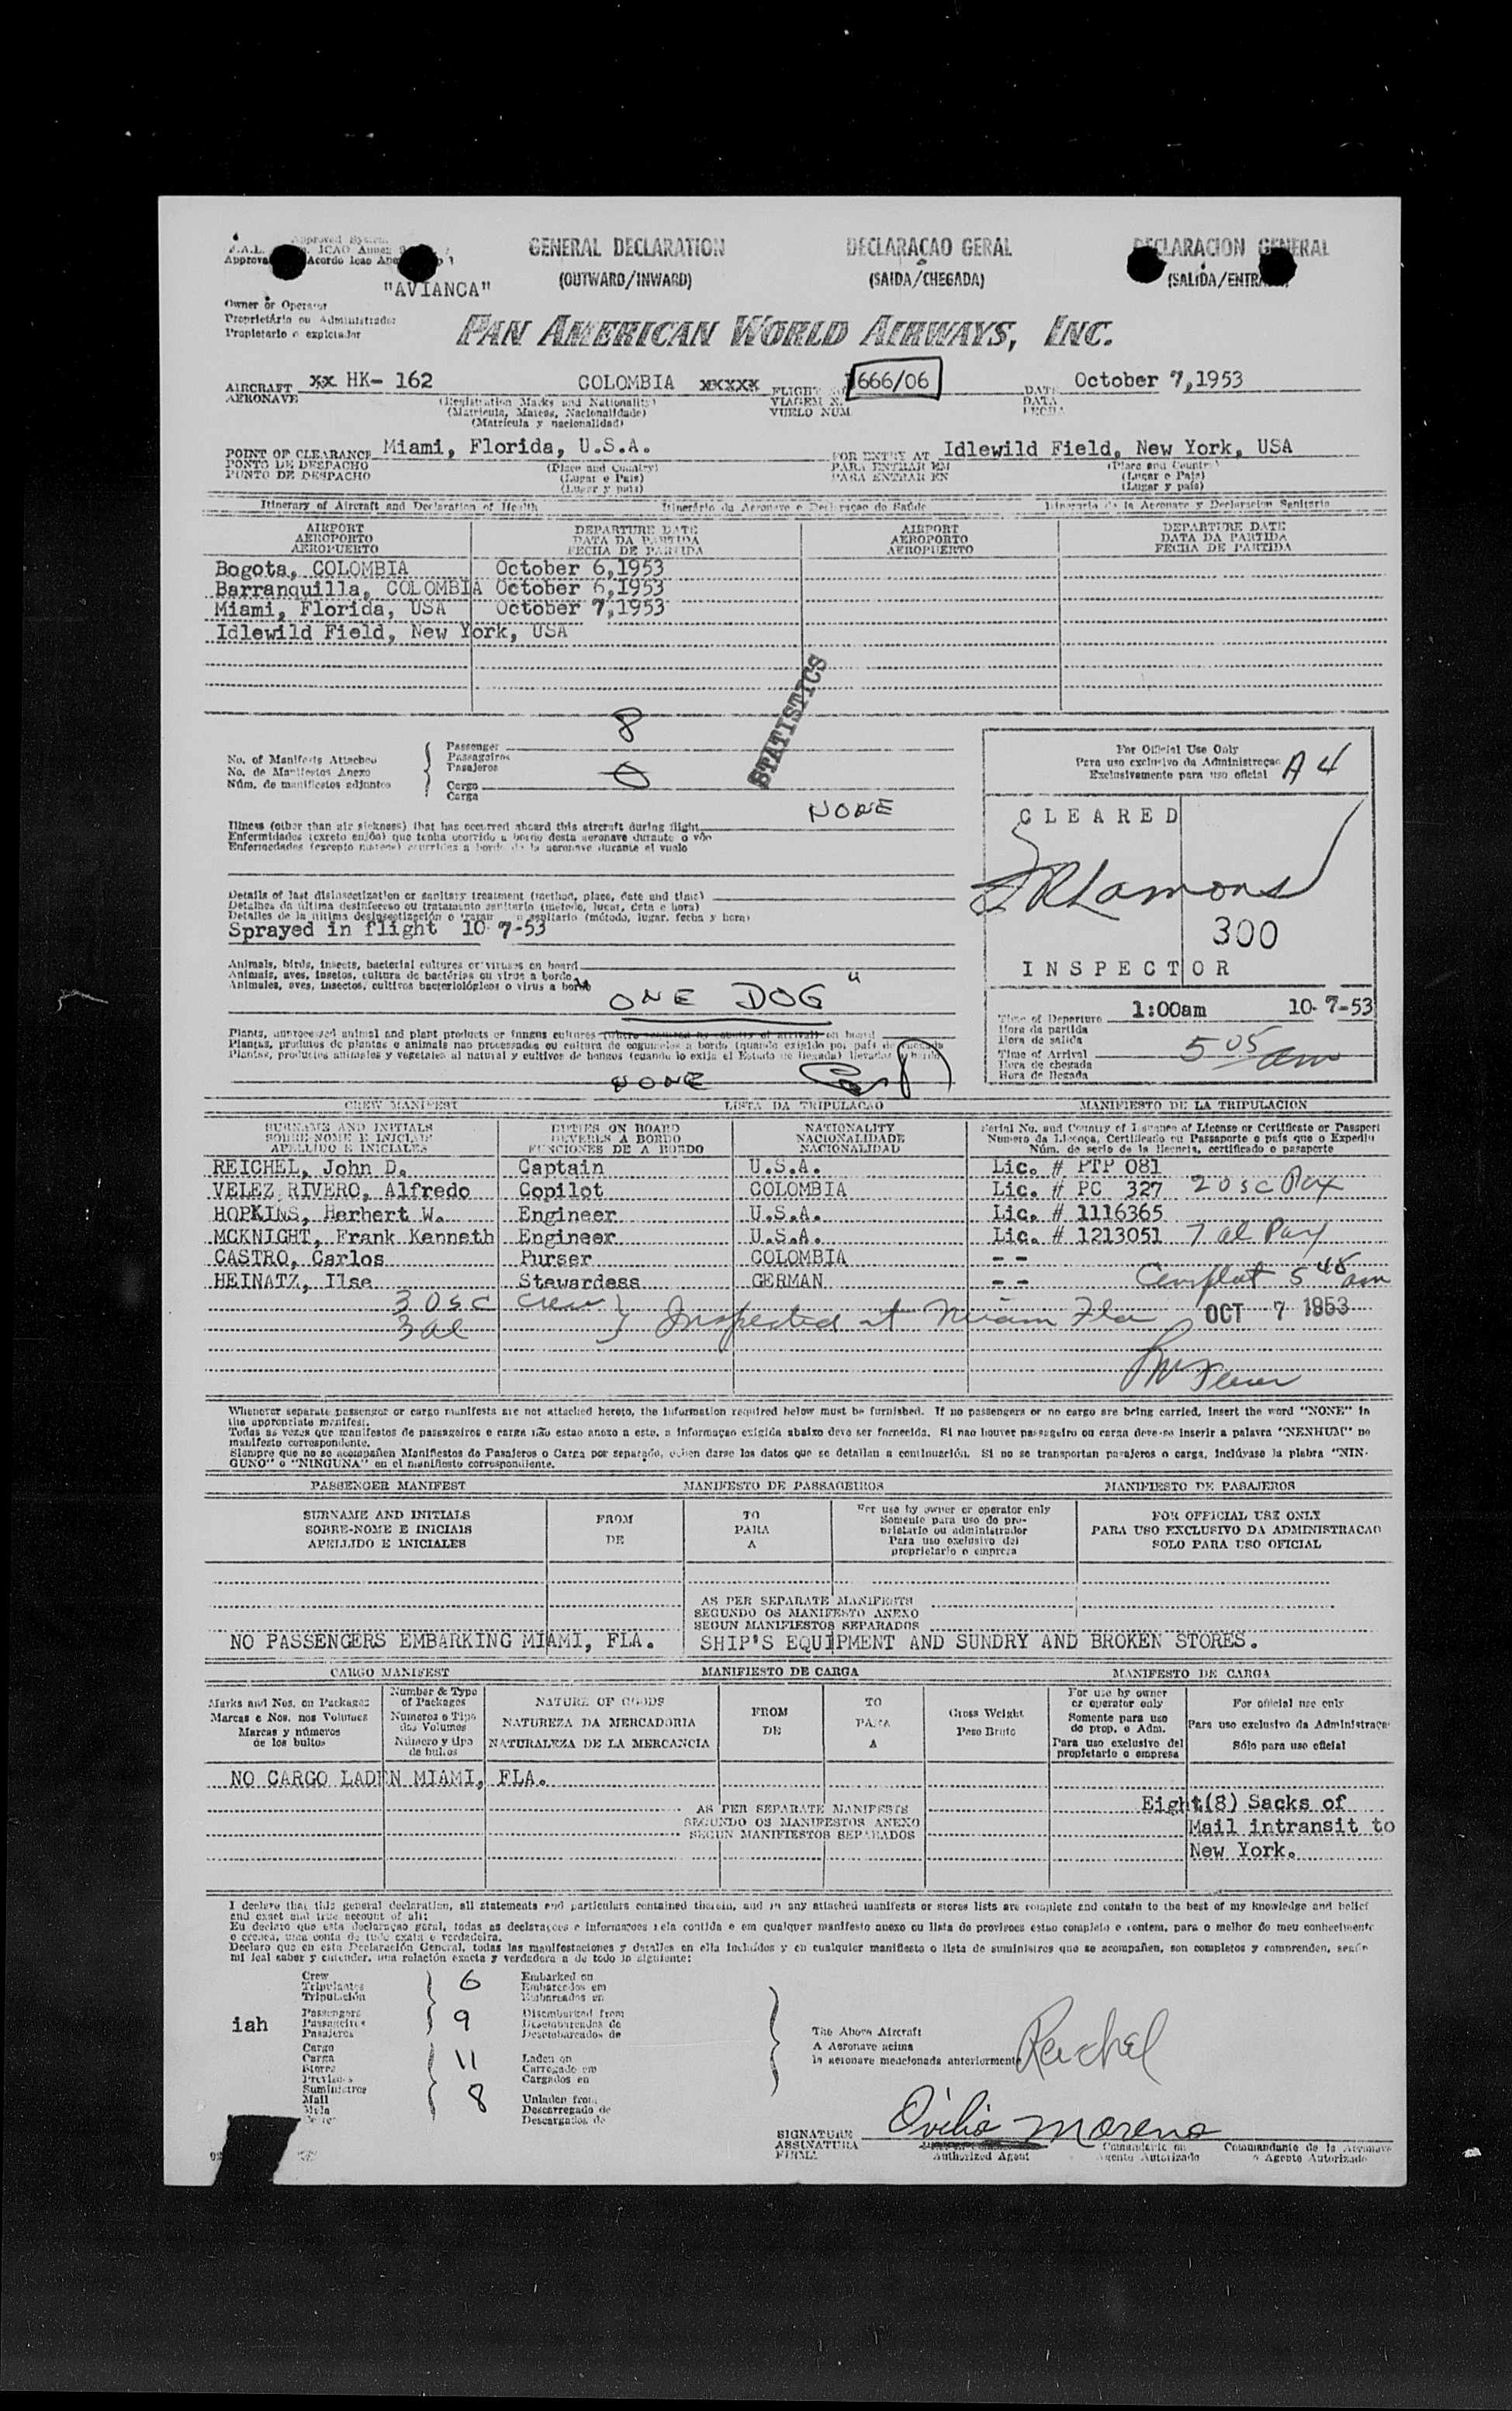 Approved System
F.A.L. ICAO Annex 9
Acordo Icao
GENERAL DECLARATION
(OUTWARD/INWARD)
DECLARAÇAO GERAL
(SAIDA/CHEGADA)
DECLARACION GENERAL
(SALIDA/ENTRADA)
"AVIANCA"
Owner or Operator
Proprietário ou Administrador
Propietario o explotador
PAN AMERICAN WORLD AIRWAYS, INC.
AIRCRAFT xx HK- 162 COLOMBIA xxxxx FLIGHT NO. 666/06 DATE October 7,1953
AERONAVE (Registration Marks and Nationality) VIAGEM N. DATA
(Matricula, Marcas, Nacionalidade) VUELO NUM. FECHA
(Matricula y nacionalidad)
POINT OF CLEARANCE Miami, Florida, U.S.A. FOR ENTRY AT Idlewild Field, New York, USA
PONTO DE DESPACHO (Place and Country) PARA ENTRAR EM (Place and Country)
PUNTO DE DESPACHO (Lugar e Pais) PARA ENTRAR EN (Lugar e Pais)
(Lugar y pais) (Lugar y pais)
Itinerary of Aircraft and Declaration of Health Itinerário da Aeronave e Declaraçao de Saúde Itinerario de la Aeronave y Declaracion Sanitaria
AIRPORT DEPARTURE DATE AIRPORT DEPARTURE DATE
AEROPORTO DATA DA PARTIDA AEROPORTO DATA DA PARTIDA
AEROPUERTO FECHA DE PARTIDA AEROPUERTO FECHA DE PARTIDA
Bogota, COLOMBIA October 6,1953
Barranquilla, COLOMBIA October 6,1953
Miami, Florida, USA October 7,1953
Idlewild Field, New York, USA
STATISTICS
No. of Manifests Attached
No. de Manifestos Anexo
Núm. de manifiestos adjuntos
Passenger 8
Passageiros
Pasajeros
Cargo 0
Carga
Illness (other than air sickness) that has occurred aboard this aircraft during flight NONE
Enfermidades (exceto enjôo) que tenha ocorrido a bordo desta aeronave durante o vôo
Enfermedades (excepto mareos) ocurridas a bordo de la aeronave durante el vuelo
Details of last disinsectization or sanitary treatment (method, place, date and time)
Detalhes da última desinfeccao ou tratamento sanitario (metodo, lugar, data e hora)
Detalles de la última desinsectización o sanitario (método, lugar, fecha y hora)
Sprayed in flight 10-7-53
Animals, birds, insects, bacterial cultures or viruses on board
Animais, aves, insetos, cultura de bactérias ou virus a bordo
Animales, aves, insectos, cultivos bacteriológicos o virus a bordo
ONE DOG"
Plants, unprocessed animal and plant products or fungus cultures (where required by country of arrival) on board
Plantas, produtos de plantas o animals nao processadas ou cultura de a bordo (quando exigido por pais de
Plantas, productos animales y vegetales al natural y cultivos de hongos (cuando lo exija el Estado de llegada) a bordo
NONE
For Official Use Only
Para uso exclusivo da Administraçao
Exclusivamente para uso oficial
A 4
CLEARED
300
INSPECTOR
Time of Departure 1:00am 10-7-53
Hora da partida
Hora de salida
Time of Arrival 5 05 am
Hora de chegada
Hora de llegada
CREW MANIFEST LISTA DA TRIPULACAO MANIFIESTO DE LA TRIPULACION
SURNAME AND INITIALS DUTIES ON BOARD NATIONALITY Serial No. and Country of Issuance of License or Certificate or Passport
SOBRE-NOME E INICIAIS DEVERES A BORDO NACIONALIDADE Numero da Licença, Certificado ou Passaporte o pais que o Expediu
APELLIDO E INICIALES FUNCIONES DE A BORDO NACIONALIDAD Núm. de serie de la licencia, certificado o pasaporte
REICHEL, John D. Captain U.S.A. Lic. # PTP 081
VELEZ RIVERO, Alfredo Copilot COLOMBIA Lic. # PC 327 2 OSC Pax
HOPKINS, Herbert W. Engineer U.S.A. Lic. # 1116365
MCKNIGHT, Frank Kenneth Engineer U.S.A. Lic. # 1213051 7 al Pax
CASTRO, Carlos Purser COLOMBIA - -
HEINATZ, Ilse Stewardess GERMAN - - 5 48 am
3 OSC Crew } Inspected at Miami Fla OCT 7 1953
3 al
Whenever separate passenger or cargo manifests are not attached hereto, the information required below must be furnished. If no passengers or no cargo are being carried, insert the word "NONE" in
the appropriate manifest.
Todas as vezes que manifestos de passageiros e carga não estao anexo a este, a informaçao exigida abaixo deve ser fornecida. Si nao houver passageiro ou carga deve-se inserir a palavra "NENHUM" no
manifesto correspondente.
Siempre que no se acompañen Manifiestos de Pasajeros o Carga por separado, deben darse los datos que se detallan a continuación. Si no se transportan pasajeros o carga, inclúyase la plabra "NIN-
GUNO" o "NINGUNA" en el manifiesto correspondiente.
PASSENGER MANIFEST MANIFESTO DE PASSAGEIROS MANIFIESTO DE PASAJEROS
SURNAME AND INITIALS FROM TO For use by owner or operator only FOR OFFICIAL USE ONLY
SOBRE-NOME E INICIAIS DE PARA Somente para uso do pro- PARA USO EXCLUSIVO DA ADMINISTRACAO
APELLIDO E INICIALES A prietario ou administrador SOLO PARA USO OFICIAL
Para uso exclusivo del
proprietario o empresa
AS PER SEPARATE MANIFESTS
SEGUNDO OS MANIFESTO ANEXO
SEGUN MANIFIESTOS SEPARADOS
NO PASSENGERS EMBARKING MIAMI, FLA. SHIP'S EQUIPMENT AND SUNDRY AND BROKEN STORES.
CARGO MANIFEST MANIFIESTO DE CARGA MANIFESTO DE CARGA
Marks and Nos. on Packages
Marcas e Nos. nos Volumes
Marcas y números
de los bultos
Number & Type
of Packages
Numeros e Tipo
dos Volumes
Número y tipo
de bultos
NATURE OF GOODS
NATUREZA DA MERCADORIA
NATURALEZA DE LA MERCANCIA
FROM
DE
TO
PARA
A
Gross Weight
Peso Bruto
For use by owner
or operator only
Somente para uso
do prop. e Adm.
Para uso exclusivo del
propietario o empresa
For official use only
Para uso exclusivo da Administraçao
Sólo para uso oficial
NO CARGO LADEN MIAMI, FLA.
AS PER SEPARATE MANIFESTS
SEGUNDO OS MANIFESTOS ANEXO
SEGUN MANIFIESTOS SEPARADOS
Eight(8) Sacks of
Mail intransit to
New York.
I declare that this general declaration, all statements and particulars contained therein, and in any attached manifests or stores lists are complete and contain to the best of my knowledge and belief
and exact and true account of all:
Eu declaro que esta declaraçao geral, todas as declaraçoes e informacoes nela contida e em qualquer manifesto anexo ou lista de provisoes estao completo e contem, para o melhor do meu conhecimento
e crenca, uma conta de tudo exata e verdadeira.
Declaro que en esta Declaración General, todas las manifestaciones y detalles en ella incluidos y en cualquier manifiesto o lista de suministros que se acompañen, son completos y comprenden, según
mi leal saber y entender, una relación exacta y verdadera a de todo lo siguiente:
Crew 6 Embarked on
Tripulantes Embarcados em
Tripulación Embarcados en
iah
Passengers 9 Disembarked from
Passageiros Desembarcados de
Pasajeros Desembarcados de
Cargo
Carga 11 Laden on
Stores Carregado em
Cargados en
Suministros
Mail 8 Unladen from
Mala Descarregado de
Descargados de
The Above Aircraft
A Aeronave acima
la aeronave mencionada anteriormente
Reichel
SIGNATURE Ovilio Moreno
ASSINATURA
FIRMA
Authorized Agent
Comandante ou
Agente Autorizado
Commandante de la Aeronave
o Agente Autorizado